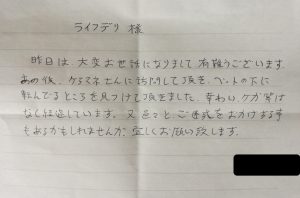 ライフデリ 様
昨日は、大変お世話になりまして有難うございます。
あの後、ケアマネさんに訪問して頂き、ベットの下に
転んでるところを見つけて頂きました。幸わい、ケガ等は
なく生活しています。又、色々と、ご迷惑をおかけする事
もあるかもしれませんが、宜しくお願い致します。